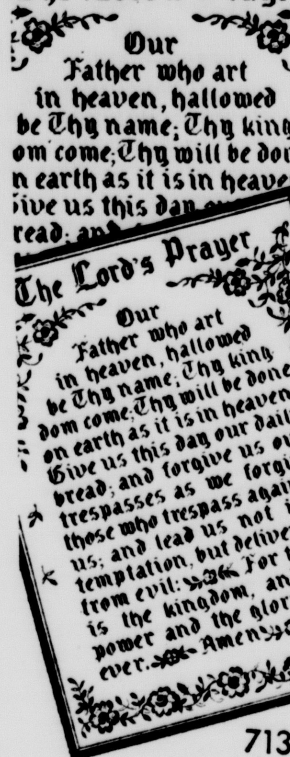 Our
Father who art
in heaven, hallowed
be Thy name; Thy king
om come; Thy will be do
n earth as it is in heave
ive us this day
read; and
The Lord's Prayer
Our
Father who art
in heaven, hallowed
be Thy name; Thy king
dom come; Thy will be done
on earth as it is in heaven
Give us this day our dail
bread; and forgive us ou
trespasses as we forgi
those who trespass agai
us; and lead us not i
temptation, but delive
from evil: For t
is the kingdom, an
power and the glor
ever. Amen
713